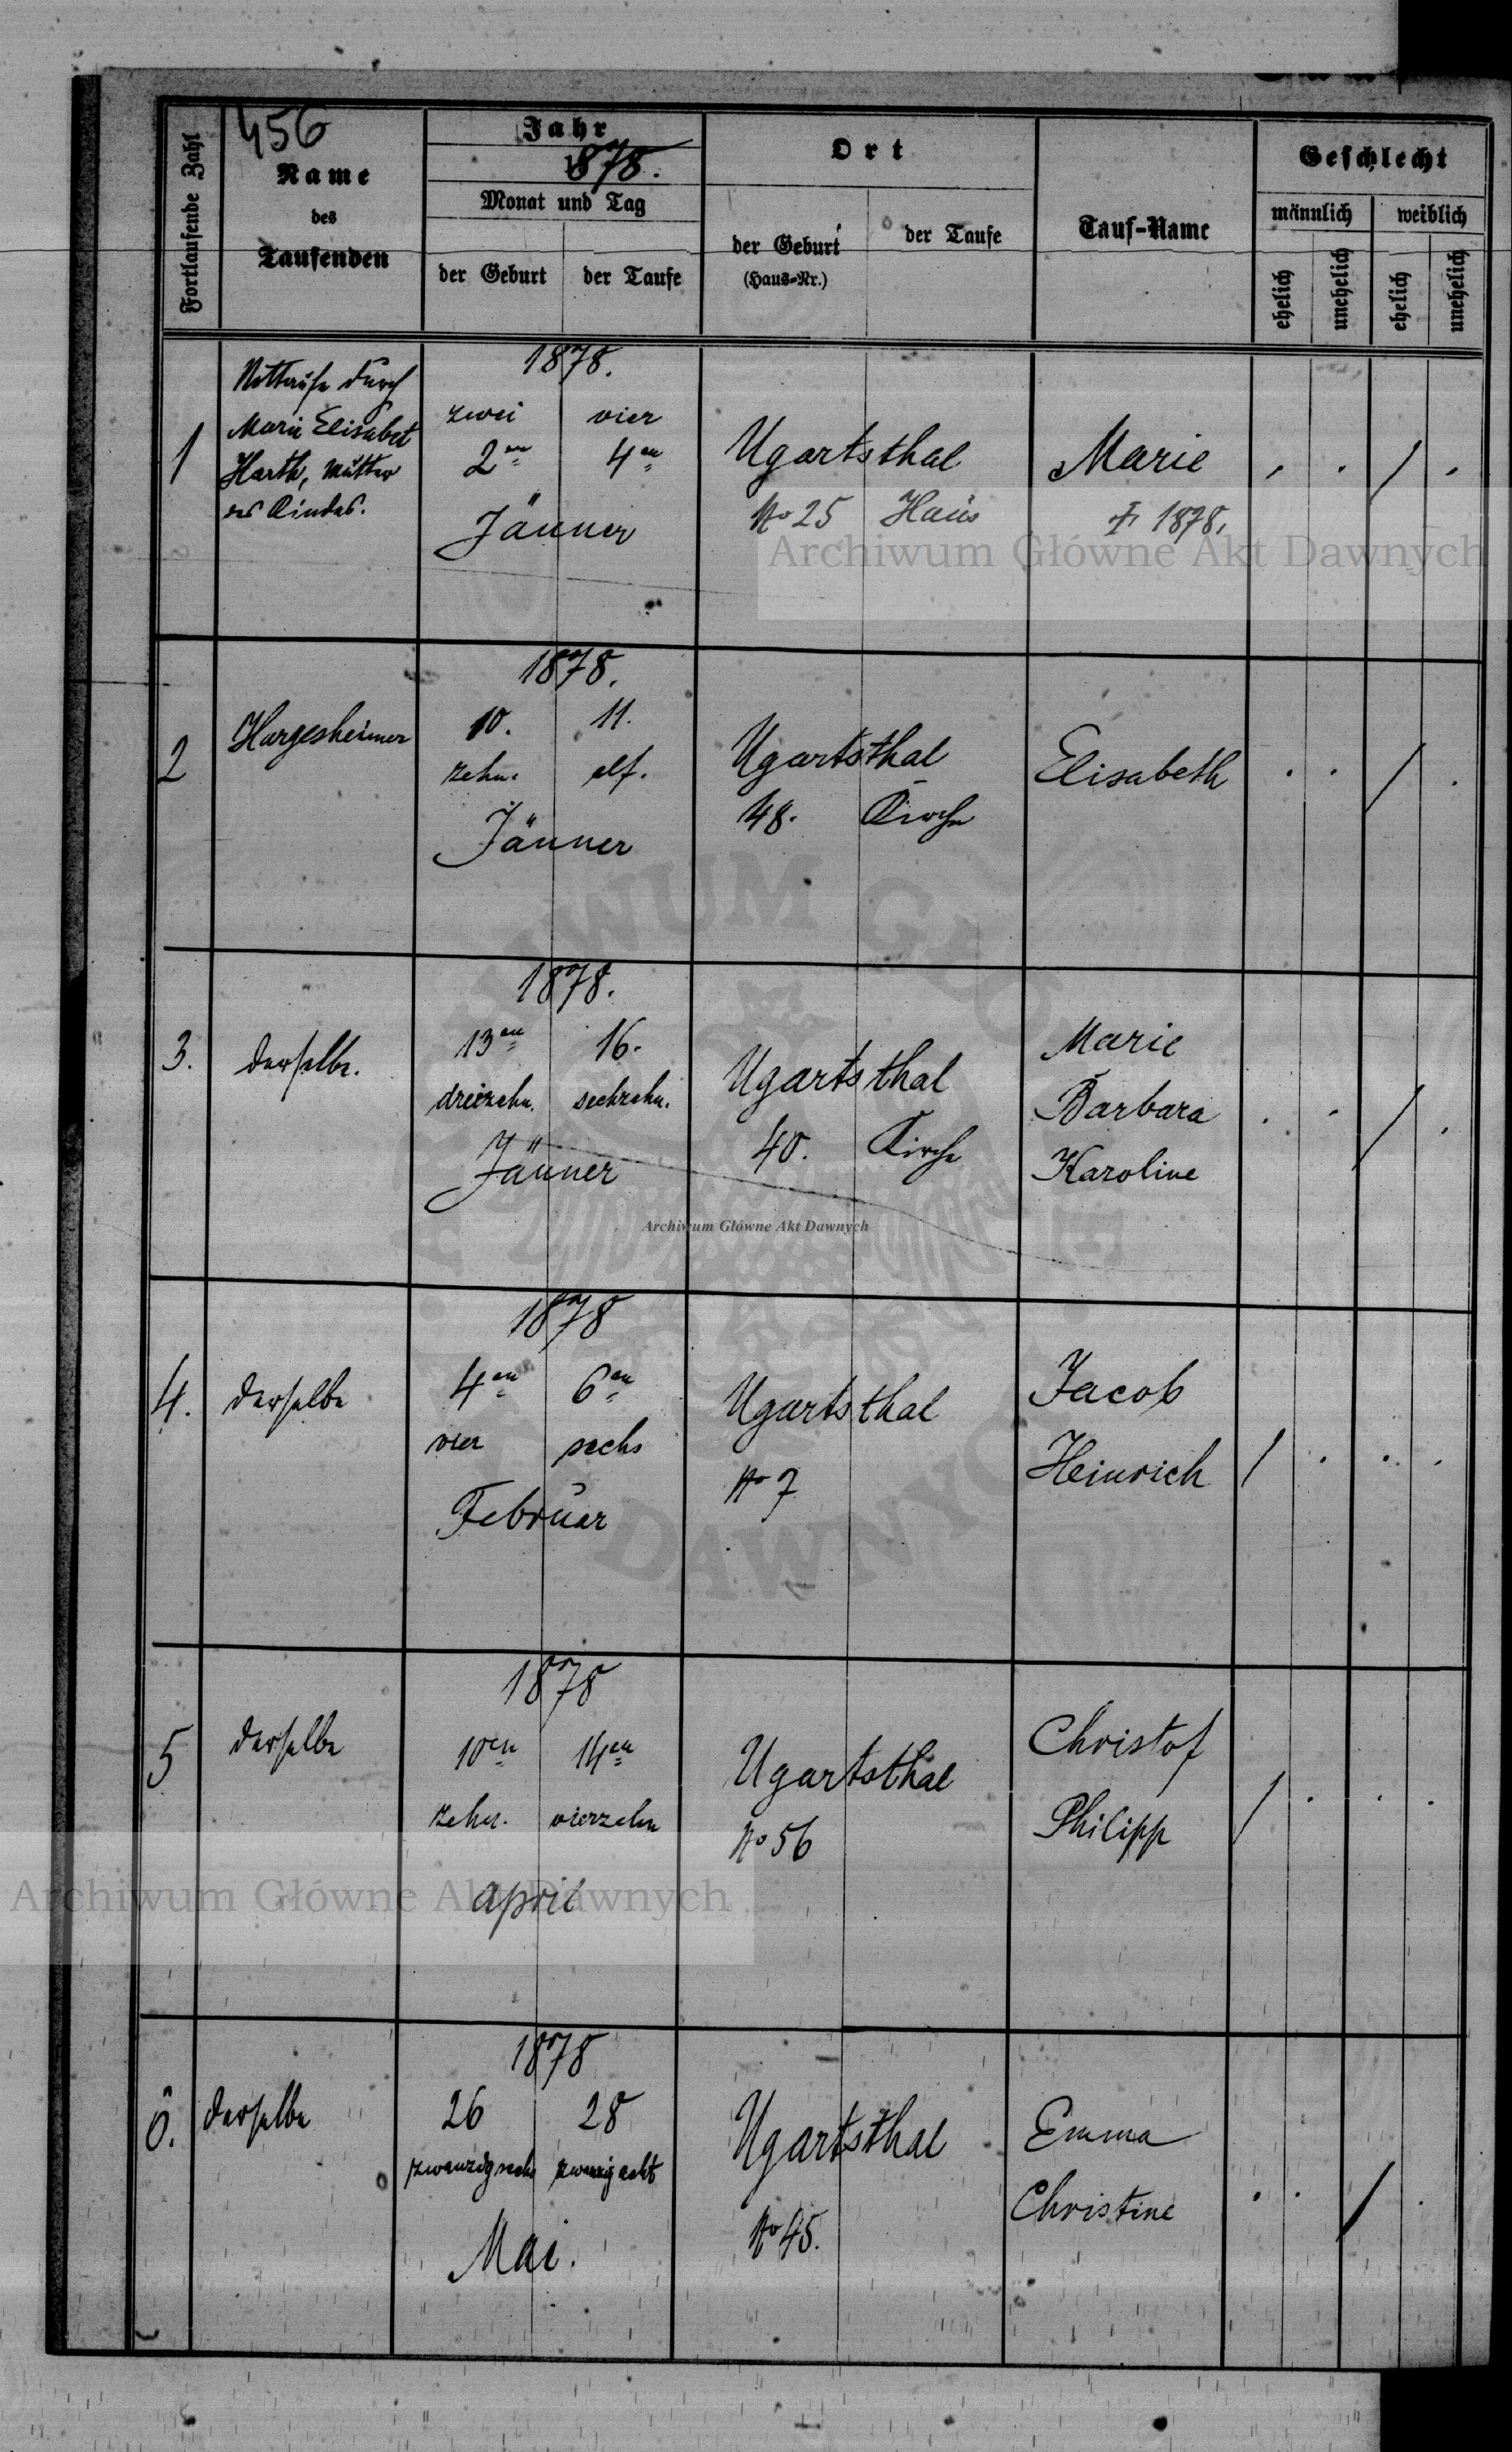 456
Fortlaufende Zahl
Name
des
Taufenden
Jahr
1878.
Monat und Tag
der Geburt
der Taufe
Ort
der Geburt
(Haus-Nr.)
der Taufe
Tauf-Name
Geschlecht
männlich
weiblich
ehelich
unehelich
ehelich
unehelich
1
Nottaufe durch
Marie Elisabet
Harth, Mutter
des Kindes.
1878.
zwei vier
2en 4en
Jänner
Ugartsthal
No 25 Haus
Marie
† 1878.
2
Hargesheimer
1878.
10. 11.
zehn. elf.
Jänner
Ugartsthal
48. Kirche
Elisabeth
3.
derselbe.
1878.
13en 16.
dreizehn. sechzehn.
Jänner
Ugartsthal
40. Kirche
Marie
Barbara
Karoline
4.
derselbe
1878
4en 6en
vier sechs
Februar
Ugartsthal
No 7
Jacob
Heinrich
5
derselbe
1878
10en 14en
zehn. vierzehn
April
Ugartsthal
No 56
Christof
Philipp
6.
derselbe
1878
26 28
zwanzigsechs zwanzigacht
Mai.
Ugartsthal
No 45.
Emma
Christine
Archiwum Główne Akt Dawnych
Archiwum Główne Akt Dawnych
Archiwum Główne Akt Dawnych